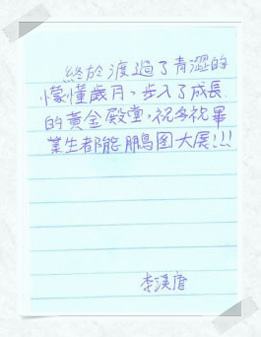 終於渡過了青澀的
懞懂歲月，步入了成長
的黃金殿堂，祝各祝畢
業生都能鵬图大展!!!
李漢唐